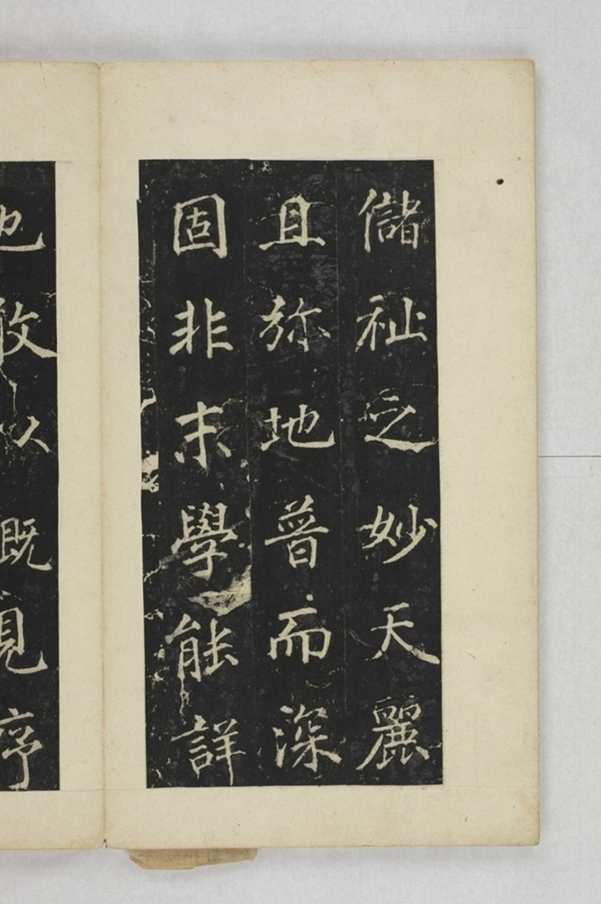 儲祉之妙天麗
且弥地普而深
固非末學能詳
也敢以既見序